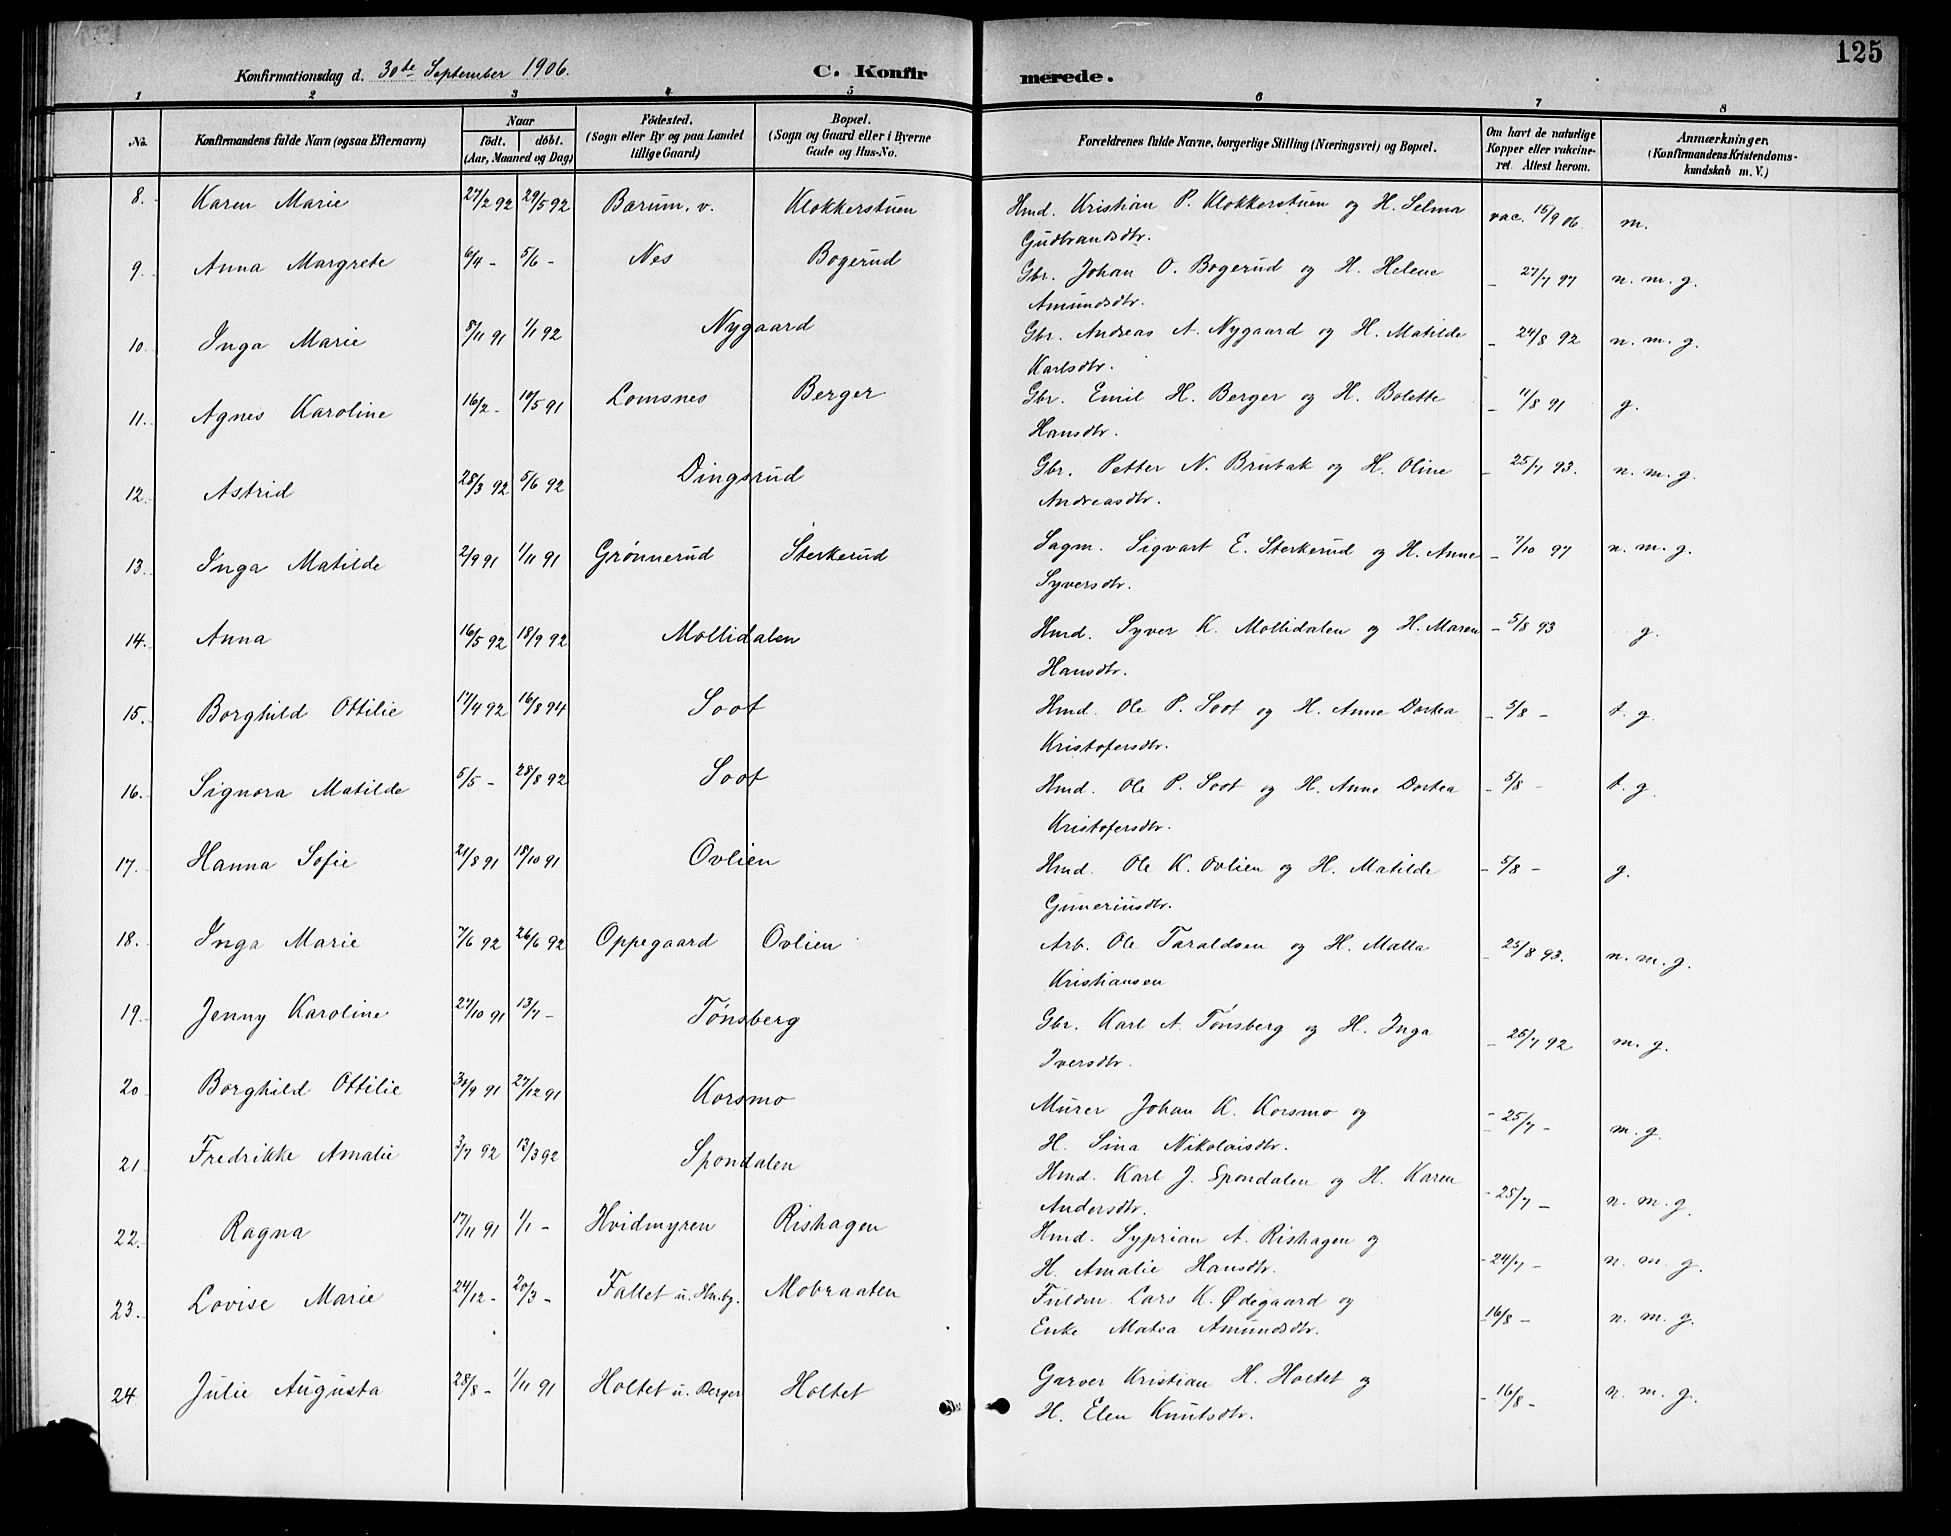 125
Konfirmationsdag d. 30de September 1906. C. Konfirmerede.
1 2 3 4 5 6 7 8
No. Konfirmandens fulde Navn (ogsaa Efternavn) Naar födt. döbt. (Aar, Maaned og Dag) Födested. (Sogn eller By og paa Landet tillige Gaard) Bopæl. (Sogn og Gaard eller i Byerne Gade og Hus-No. Forældrenes fulde Navne, borgerlige Stilling (Næringsvei) og Bopæl. Om havt de naturlige Kopper eller vakcineret Attest herom. Anmærkninger. (Konfirmandens Kristendomskundskab m. V.)
8. Karen Marie 27/2 92 29/5 92 Bærum, v. Klokkerstuen Hmd. Kristian P. Klokkerstuen og H. Selma vac. 15/9 06 m.
Gudbrandsdtr.
9. Anna Margrete 6/4 - 5/6 - Nes Bogerud Gbr. Johan O. Bogerud og H. Helene - 27/7 97 n. m. g.
Amundsdtr.
10. Inga Marie 8/11 91 1/1 92 Nygaard Gbr. Andreas A. Nygaard og H. Matilde - 24/8 92 n. m. g.
Karlsdtr.
11. Agnes Karoline 16/2 - 10/5 91 Lomsnes Berger Gbr. Emil H. Berger og H. Bolette - 11/8 91 g.
Hansdtr.
12. Astrid 28/3 92 5/6 92 Dingsrud Gbr. Petter N. Brubak og H. Oline - 25/7 93. n. m. g.
Andreasdtr.
13. Inga Matilde 2/9 91 1/11 91 Grønnerud Sterkerud Sagm. Sigvart E. Sterkerud og H. Anne - 7/10 97 n. m. g.
Syversdtr.
14. Anna 16/5 92 18/9 92 Mollidalen Hmd. Syver K. Mollidalen og H. Maren - 5/8 93 g.
Hansdtr.
15. Borghild Ottilie 17/4 92 16/8 94 Soot Hmd. Ole P. Soot og H. Anne Dortea - 5/8 - t. g.
Kristofersdtr.
16. Signora Matilde 5/5 - 28/8 92 Soot Hmd. Ole P. Soot og H. Anne Dortea - 5/8 - t. g.
Kristofersdtr.
17. Hanna Sofie 21/8 91 18/10 91 Ovlien Hmd. Ole K. Ovlien og H. Matilde - 5/8 - g.
Guneriusdtr.
18. Inga Marie 7/6 92 26/6 92 Oppegaard Ovlien Arb. Ole Taraldsen og H. Malla - 25/8 93. n. m. g.
Kristiansen
19. Jenny Karoline 27/10 91 13/7 - Tønsberg Gbr. Karl A. Tønsberg og H. Inga - 25/7 92 m. g.
Iversdtr.
20 Borghild Ottilie 27/12 91 Korsmo Murer Johan K. Korsmo og - 25/7 - m. g.
H. Sina Nikolaisdtr.
21 Fredrikke Amalie 92 13/3 92 Spondalen Hmd. Karl J. Spondalen og H. Karen - 25/7 - n. m. g.
Andersdtr.
22. Ragna 17/11 91 1/1 - Hvidmyren Rishagen Hmd. Syprian A. Rishagen og - 24/7 - n. m. g.
H. Amalie Hansdtr.
23. Lovise Marie 24/12 - 20/3 - Fallet u. Hmby. Mobraaten Fuldm. Lars K. Ødegaard og - 16/8 - n. m. g.
Enke Matea Amundsdtr.
24. Julie Augusta 28/8 - 1/11 91 Holtet u. Berger Holtet Garver Kristian H. Holtet og - 16/8 - n. m. g.
H. Elen Knutsdtr.